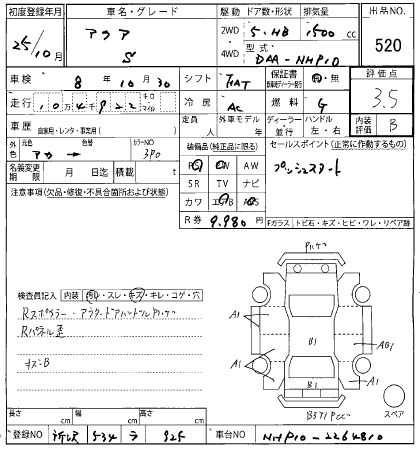 初度登録年月 車名・グレード 駆動 ドア数・形状 排気量 出品NO.
25/10月 アクア S 2WD 4WD 5・HB 1500 cc 520
型式 DAA-NHP10
車検 8年 10月 30 シフト FAT 保証書 有・無 評価点 3.5
走行 104922 キロ マイル 冷房 AC 燃料 G
車歴 自家用・レンタ・事業用( ) 定員 人 外車モデル 年 ディーラー・並行 ハンドル 左・右 内装評価 B
外色 元色 色替 カラーNO
アカ → 3P0
装備品(純正品に限る) セールスポイント (正常に作動するもの)
名義変更期限 月 日迄 積載 t PS PW AW プッシュスタート
注意事項(欠品・修復・不具合箇所および状態) SR TV ナビ
カワ エアB ABS
R券 9,980 Fガラス トビ石・キズ・ヒビ・ワレ・リペア跡
検査員記入 内装 汚レ・スレ・キズ・キレ・コゲ・穴
Rスポイラー・アウタードアハンドル
Rパネル歪
キズ・B
A1 A1 B1 AB1 A1 B1
スペア
長さ cm 幅 cm 高さ cm
登録NO 所沢 534 ラ 925 車台NO NHP10-2264810